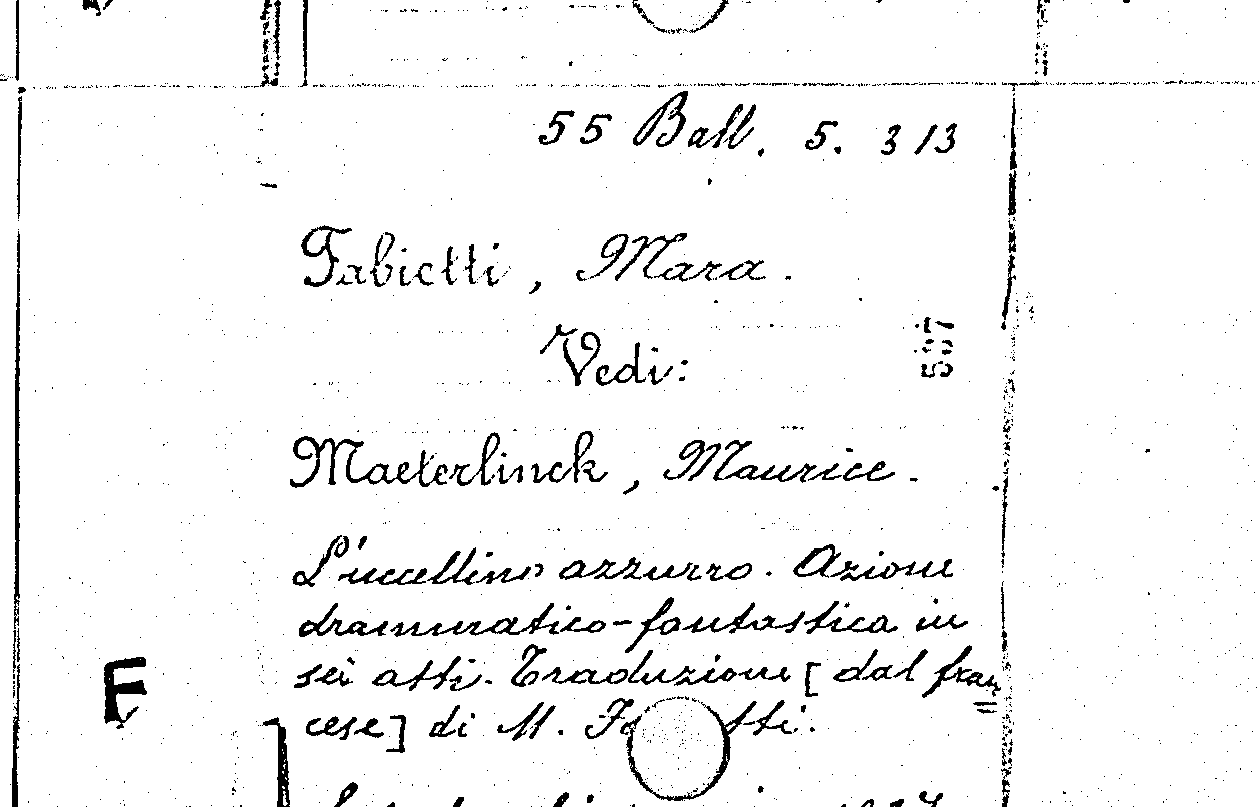 55 Ball. 5. 313
Fabietti, Mara.
Vedi:
507
Maeterlinck, Maurice.
L'uccellino azzurro. Azione
drammatico-fantastica in
sei atti. Traduzione [dal fran=
cese] di M. Fa tti.
F